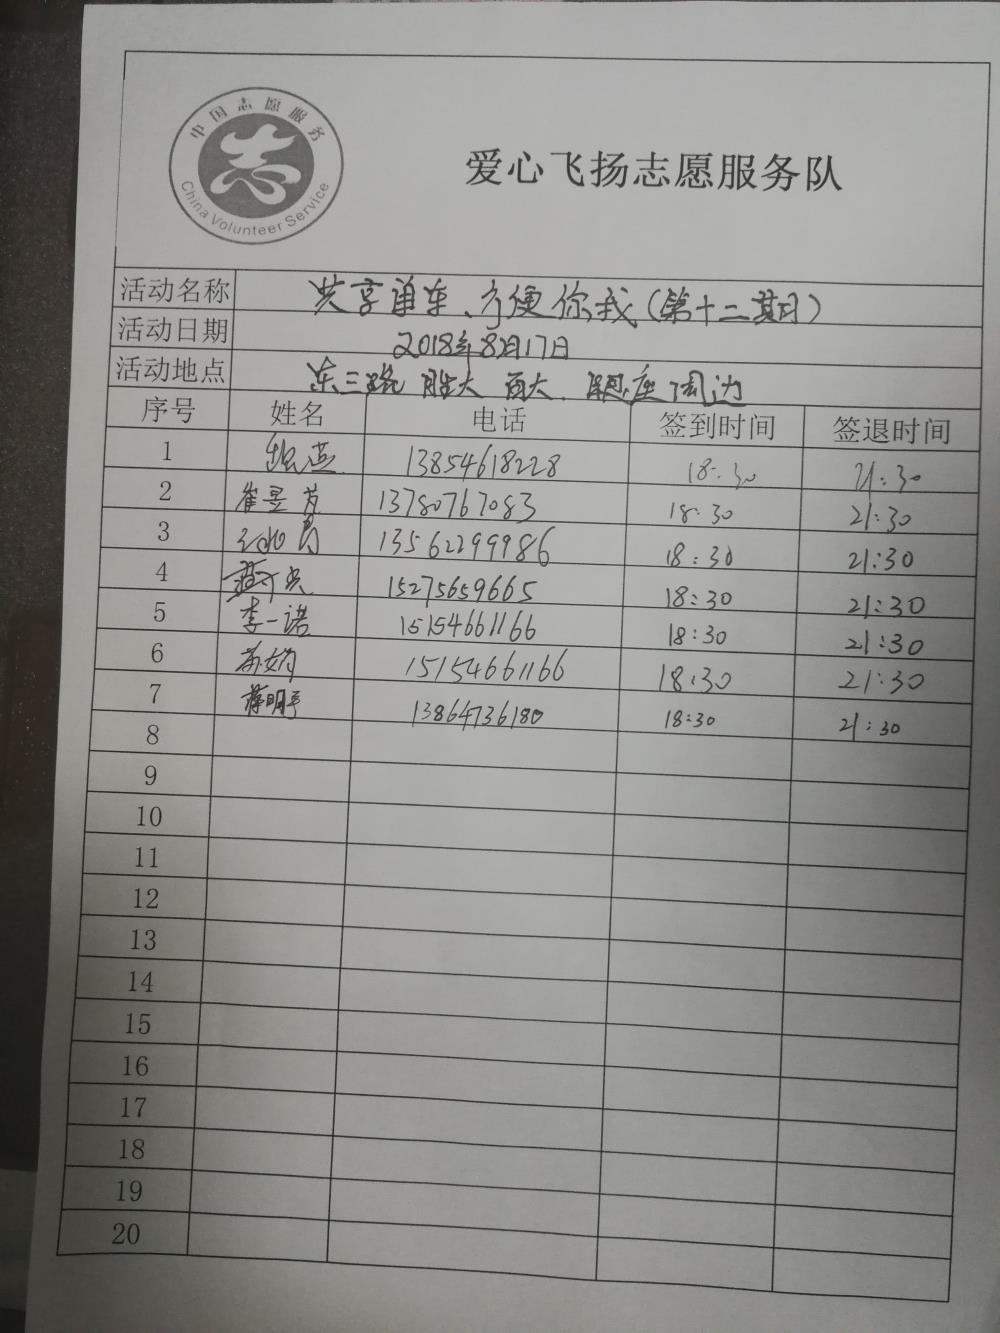 中国志愿服务
China Volunteer Service
爱心飞扬志愿服务队
活动名称 共享单车、方便你我(第十二期)
活动日期 2018年8月17日
活动地点 东三路 胜大 百大
序号 姓名 电话 签到时间 签退时间
1 13854618228 18:30 21:30
2 崔昱 13780767083 18:30 21:30
3 13562299986 18:30 21:30
4 15275659665 18:30 21:30
5 李一诺 15154661166 18:30 21:30
6 15154661166 18:30 21:30
7 蒋明 13864736180 18:30 21:30
8
9
10
11
12
13
14
15
16
17
18
19
20